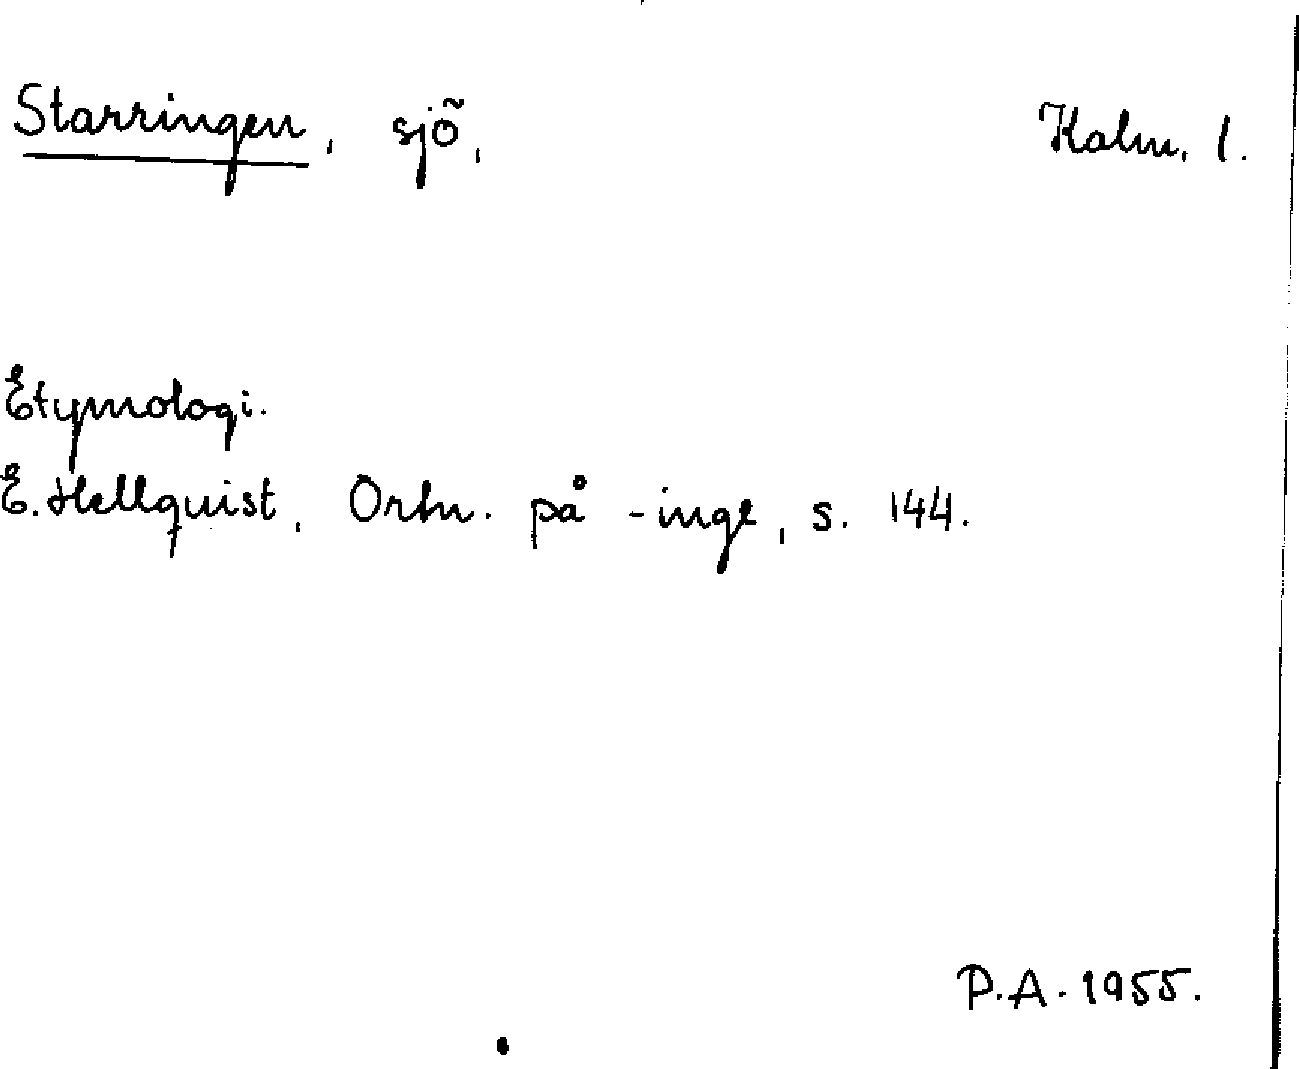 Starringen, sjö, Kalm. l.
Etymologi.
E. Hellquist, Ortn. på -inge, s. 144.
P.A. 1955.